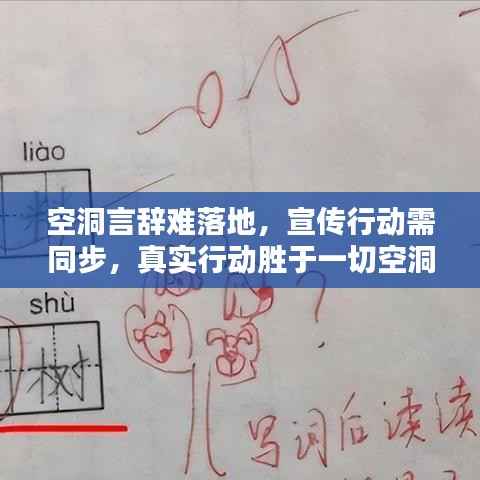 liào
料
空洞言辞难落地，宣传行动需
同步，真实行动胜于一切空洞
shù
树
?
写词后读读